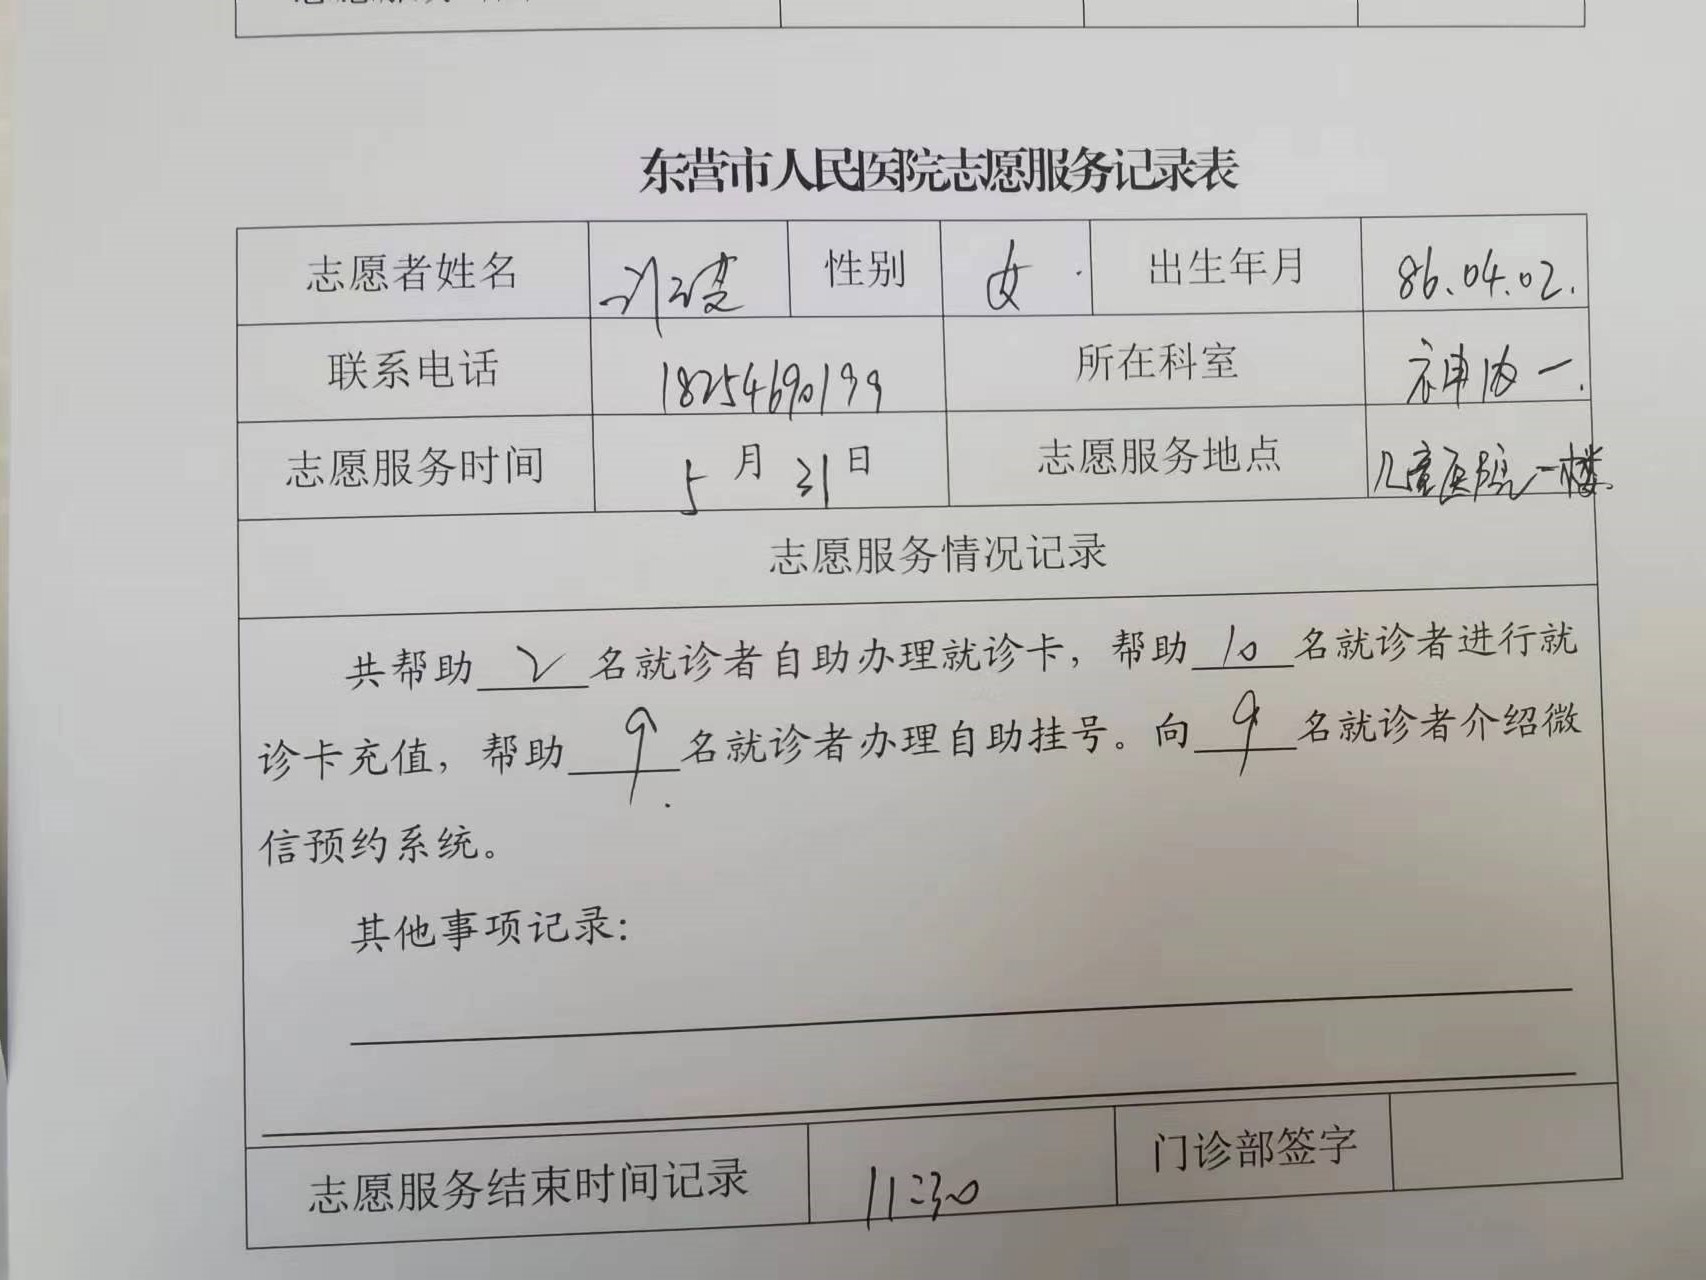 东营市人民医院志愿服务记录表
志愿者姓名 性别 女 出生年月 86.04.02.
联系电话 18254690199 所在科室 神内一.
志愿服务时间 5月31日 志愿服务地点 儿童医院一楼.
志愿服务情况记录
共帮助 2 名就诊者自助办理就诊卡，帮助 10 名就诊者进行就
诊卡充值，帮助 9 名就诊者办理自助挂号。向 9 名就诊者介绍微
信预约系统。
其他事项记录：
志愿服务结束时间记录 11:30 门诊部签字